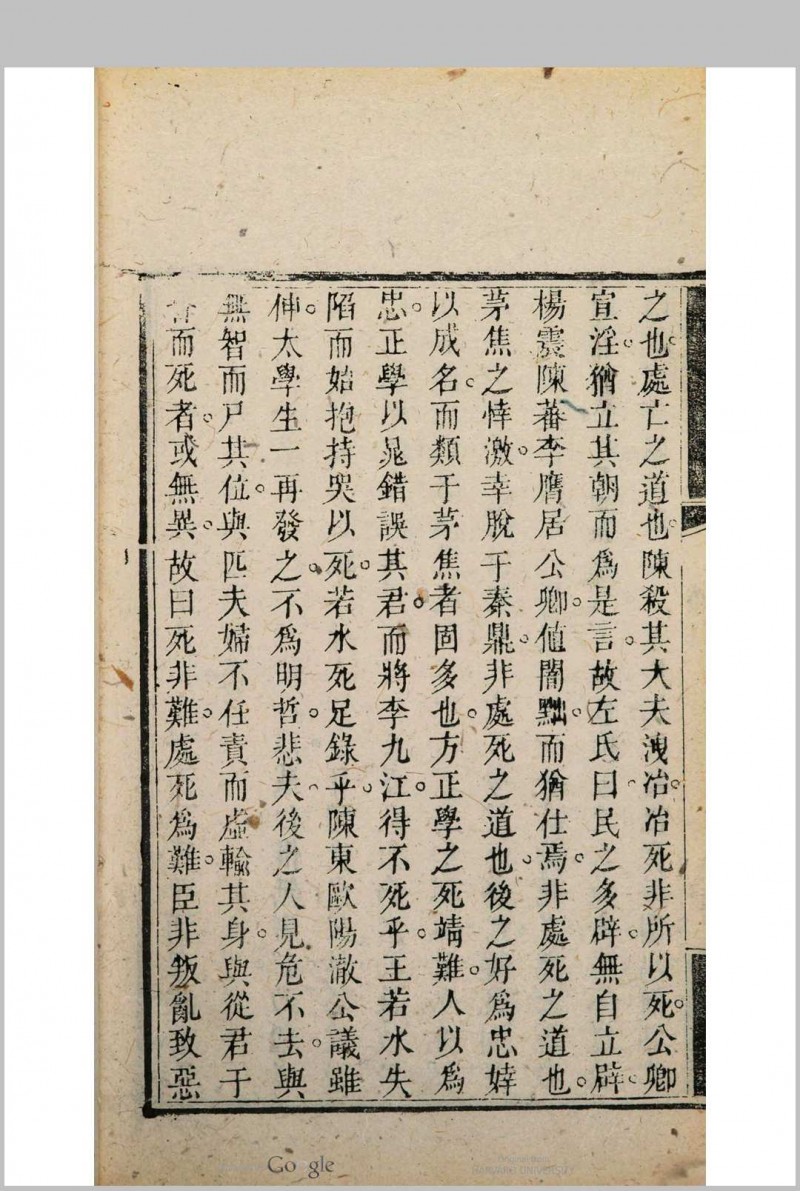 之也處亡之道也陳殺其大夫洩冶冶死非所以死公卿
宣淫猶立其朝而爲是言故左氏曰民之多辟無自立辟
楊震陳蕃李膺居公卿値闇黜而猶仕焉非處死之道也
茅焦之悻激幸脫于秦鼎非處死之道也後之好爲忠婞
以成名而類于茅焦者固多也方正學之死靖難人以爲
忠正學以晁錯誤其君而將李九江得不死乎王若水失
陷而始抱持哭以死若水死足錄乎陳東歐陽澈公議雖
伸太學生一再發之不爲明哲悲夫後之人見危不去與
無智而尸其位與匹夫婦不任責而虛輸其身與從君于
而死者或無異故曰死非難處死爲難臣非叛亂致惡
Go gle
HARVARD UNIVERSITY